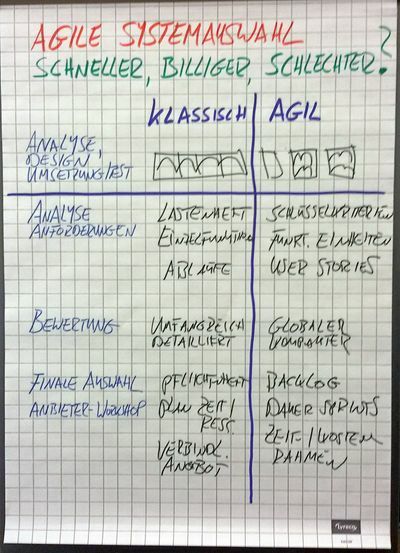 AGILE SYSTEMAUSWAHL
SCHNELLER, BILLIGER, SCHLECHTER?
KLASSISCH AGIL
ANALYSE,
DESIGN,
UMSETZUNG/TEST
ANALYSE LASTENHEFT SCHLÜSSELKRITERIEN
ANFORDERUNGEN EINZELFUNKTION FUNKT. EINHEITEN
ABLÄUFE USER STORIES
BEWERTUNG UMFANGREICH GLOBALER
DETAILLIERT
FINALE AUSWAHL PFLICHTENHEFT BACKLOG
ANBIETER-WORKSHOP PLAN ZEIT/ DAUER SPRINTS
RESS. ZEIT-/KOSTEN
VERBINDL. RAHMEN
ANGEBOT